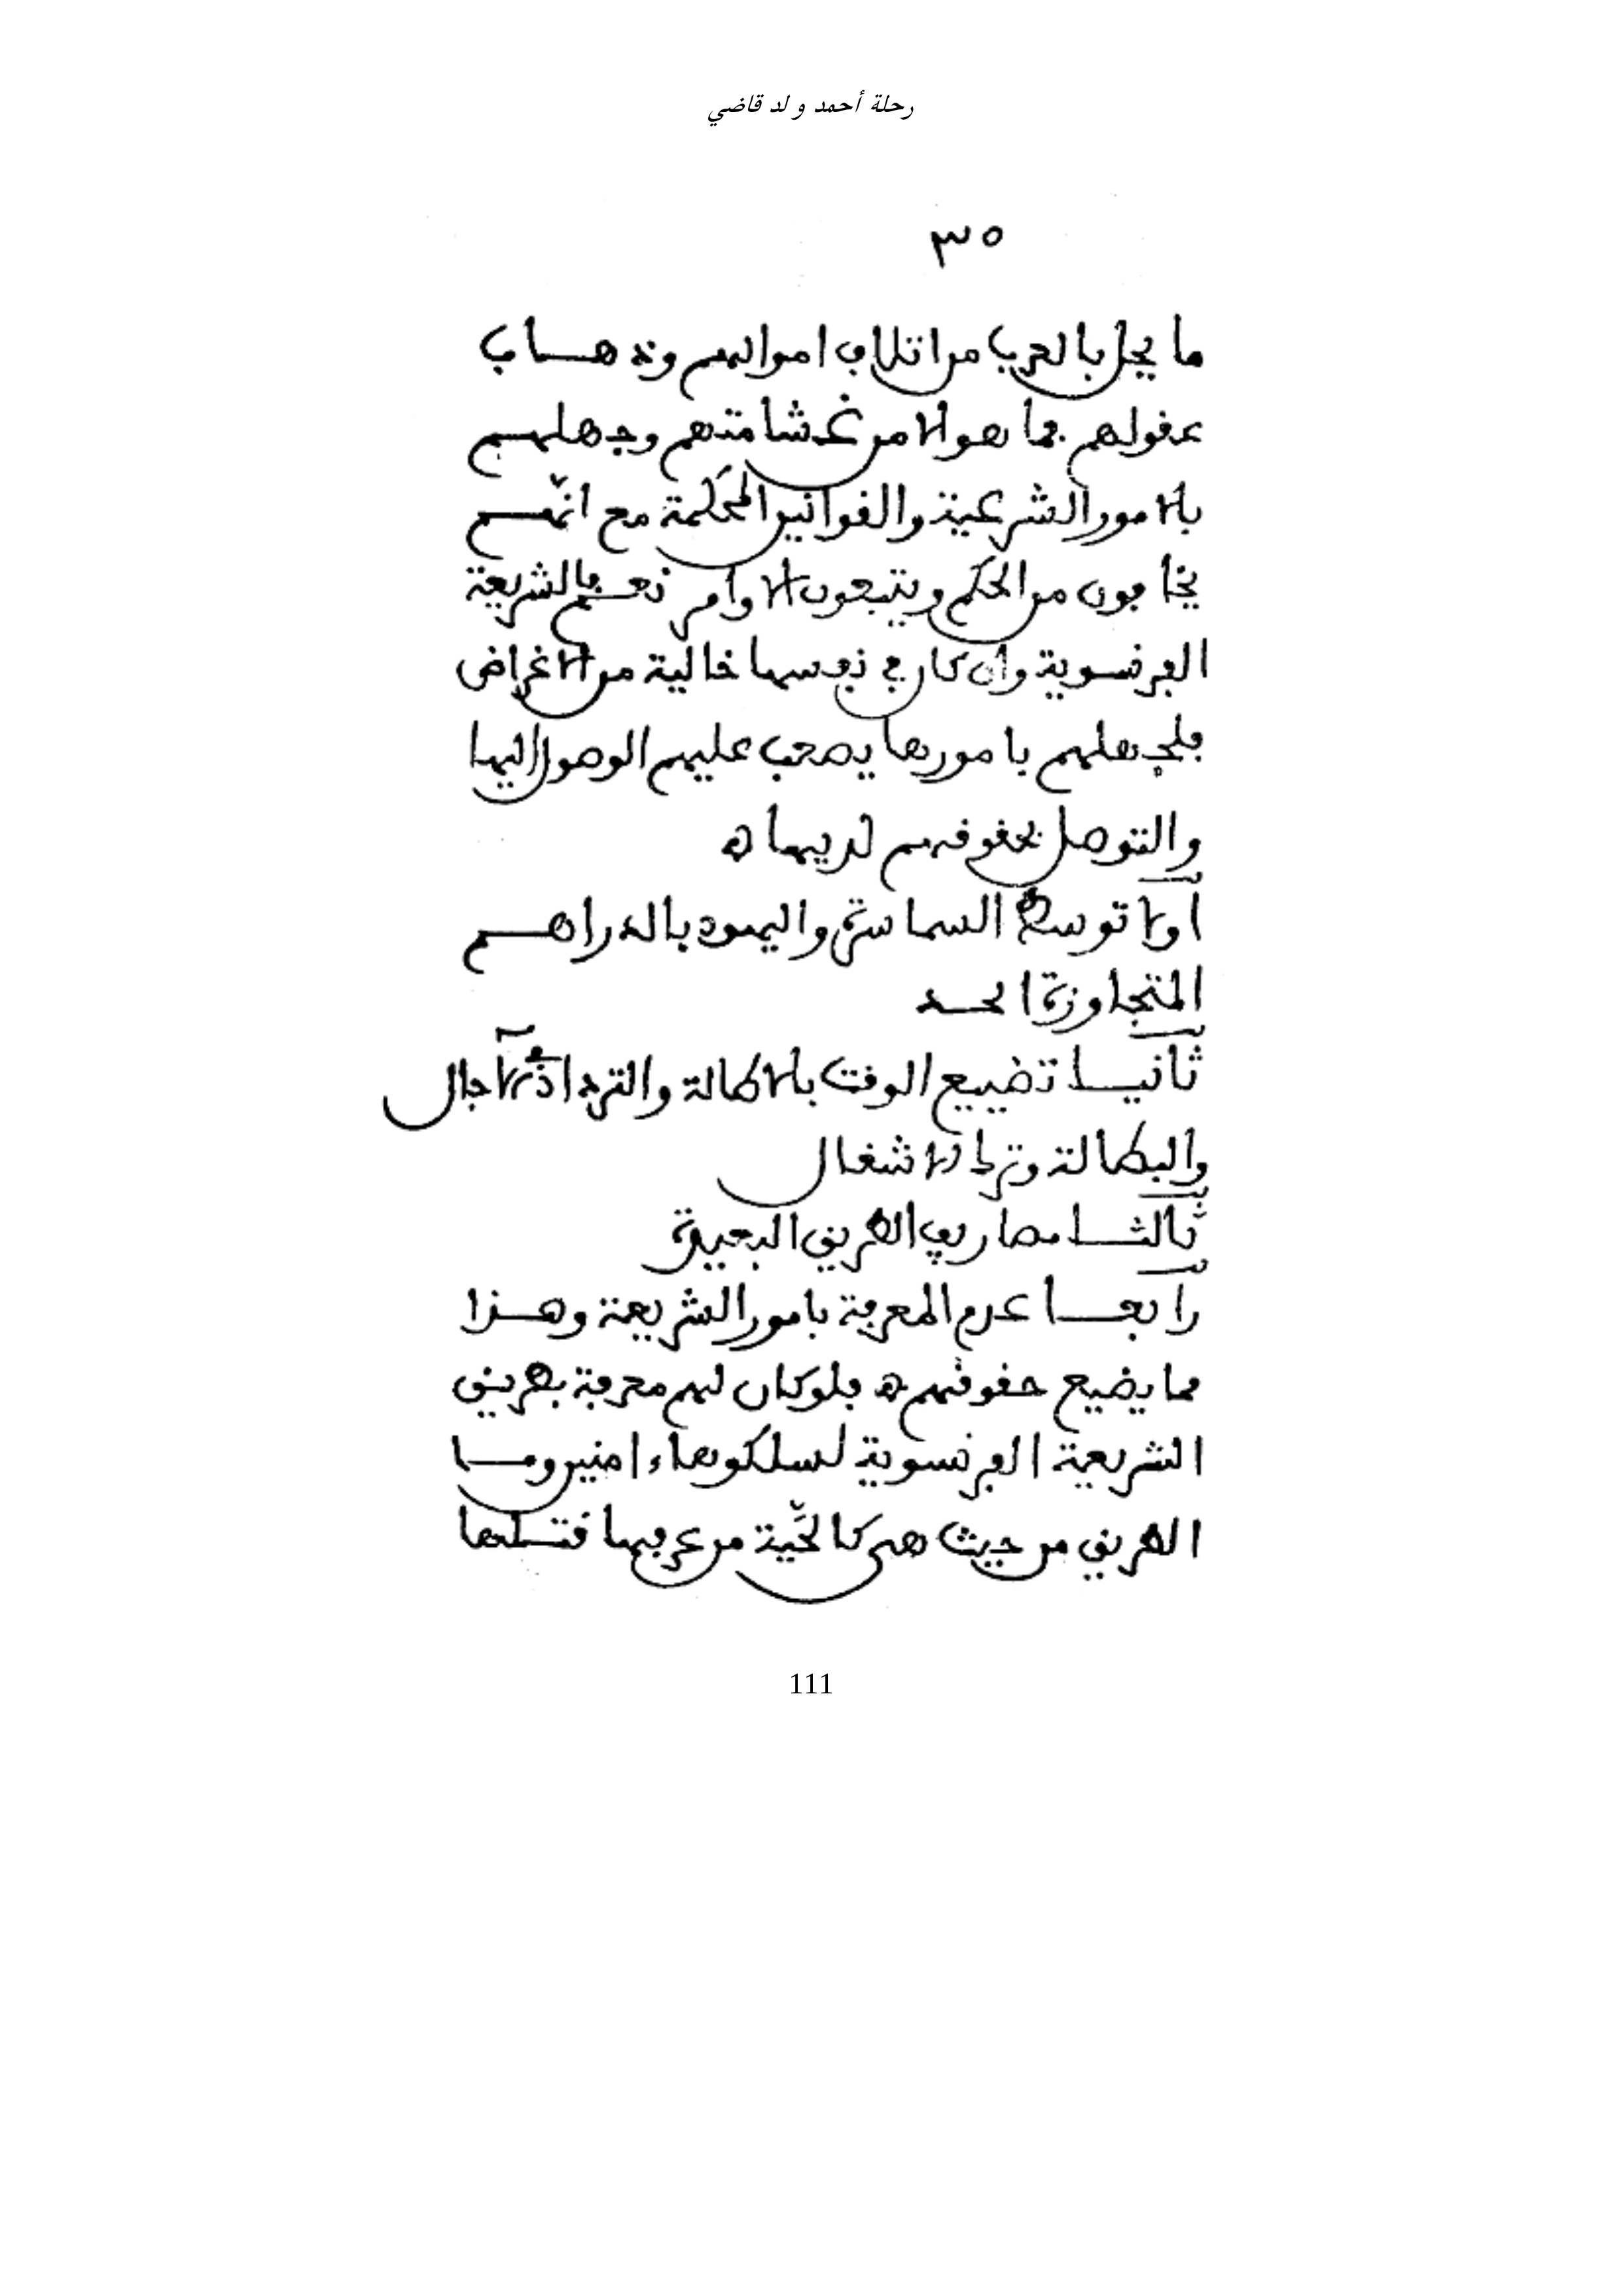 رحلة أحمد و لد قاضي
٣٥
ما يحل بالعرب من اتلاف اموالهم وذهاب
عقولهم فما هو الا من غشامتهم وجهلهم
بالامور الشرعية والقوانين المحكمة مع انّهم
يخافون من الحكم ويتبعون الاوامر نعم فالشريعة
الفرنسوية وان كان في نفسها خالية من الاغراض
فلجهلهم بامورها يصعب عليهم الوصول اليها
والتوصل بحقوقهم لديها ه
اولا توسط السماسرة واليهود بالدراهم
المتجاوزة الحد
ثانيا تضييع الوقت بالاطالة والترداد الآجال
والبطالة وترك الاشغال
ثالثا مصاريف الطريق البعيدة
رابعا عدم المعرفة بامور الشريعة وهذا
مما يضيع حقوقهم ه فلو كان لهم معرفة بطريق
الشريعة الفرنسوية لسلكوها ءامنين وما
الطريق من حيث هي كالحيّة من عرفها فتلها
111